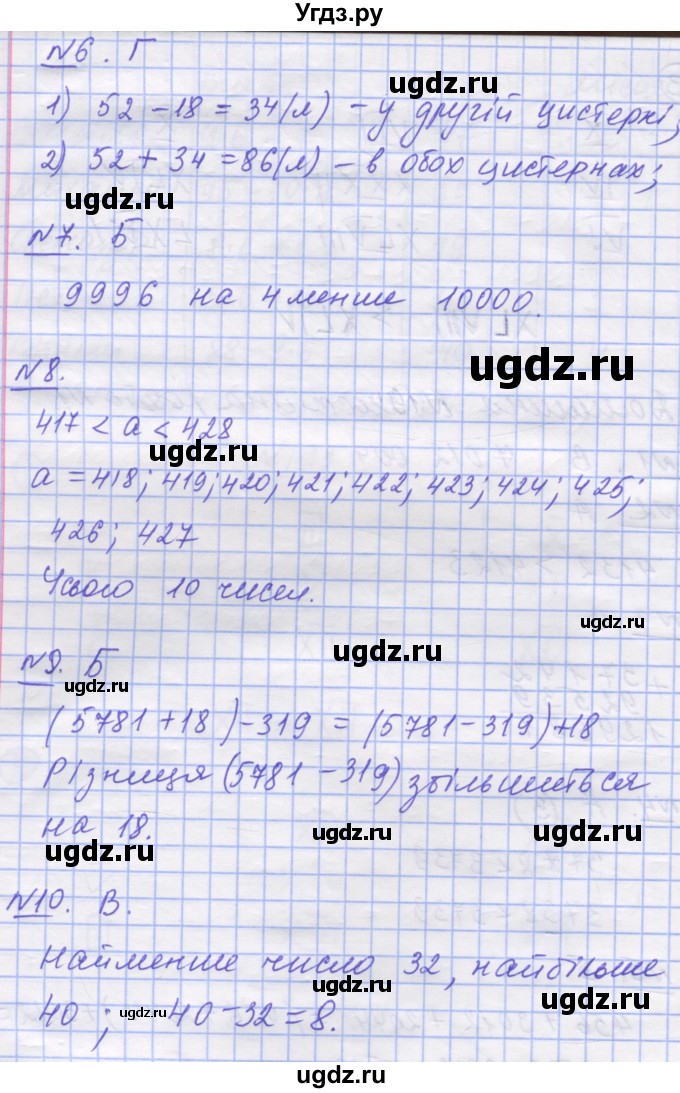 Угдз.ру
№6. Г
1) 52 - 18 = 34 (л) - у другій цистерні;
2) 52 + 34 = 86 (л) - в обох цистернах;
ugdz.ru
№7. Б
9996 на 4 менше 10000.
ugdz.ru
№8.
417 < а < 428
ugdz.ru
а = 418; 419; 420; 421; 422; 423; 424; 425;
426; 427
Усього 10 чисел.
ugdz.ru
ugdz.ru
№9. Б
ugdz.ru
(5781 + 18) - 319 = (5781 - 319) + 18
Різниця (5781 - 319) збільшиться
на 18.
ugdz.ru
ugdz.ru
ugdz.ru
№10. В.
Найменше число 32, найбільше
ugdz.ru
ugdz.ru
40; 40 - 32 = 8.
ugdz.ru
ugdz.ru